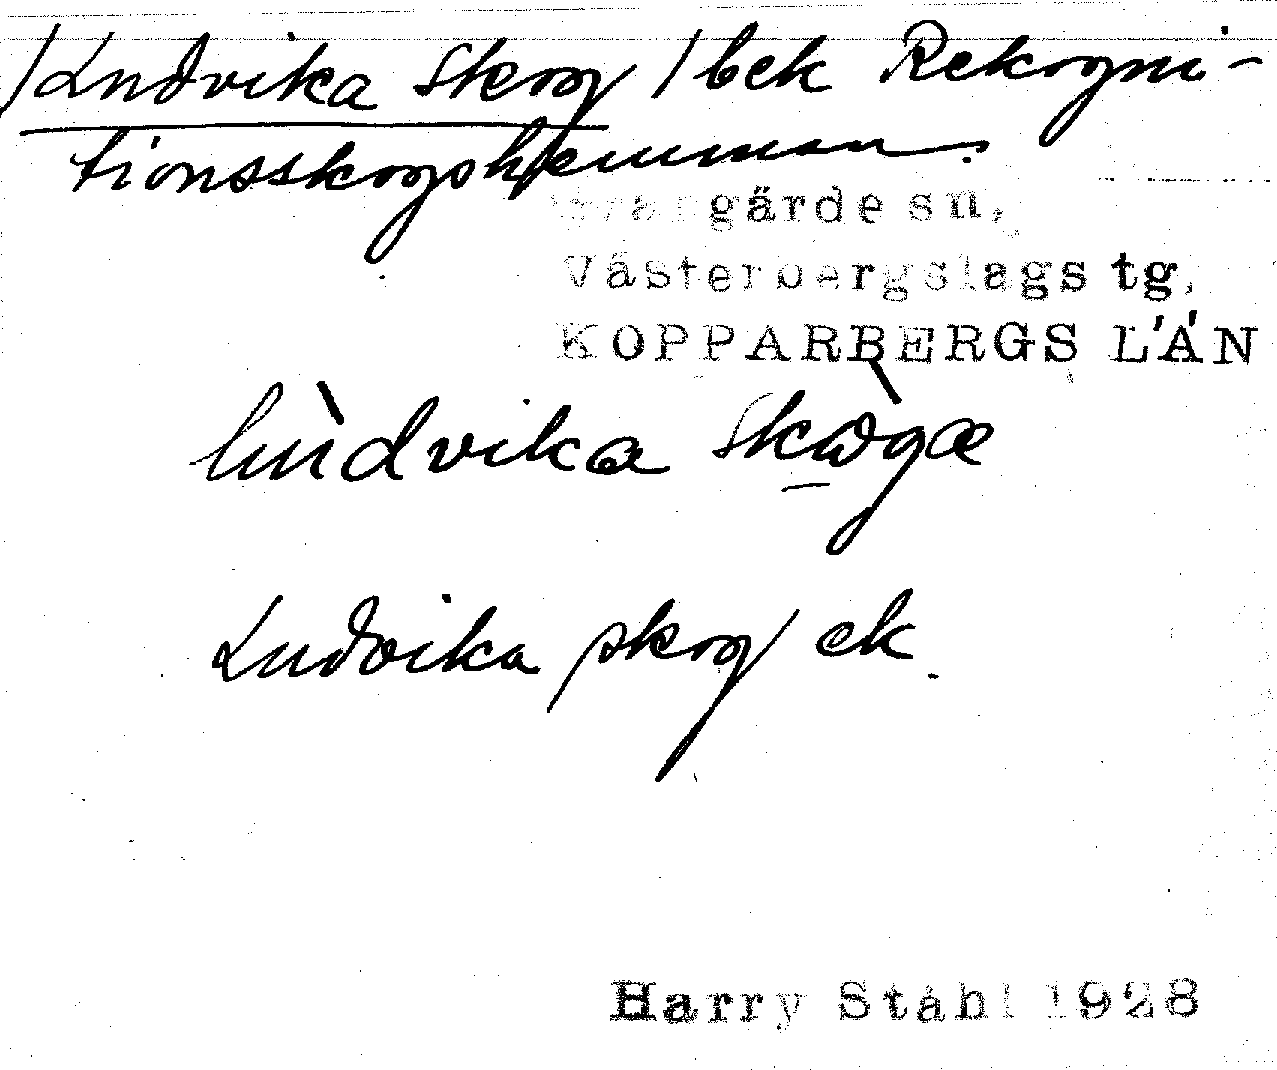 /Ludvika Skog/ bek Rekogni-
tionsskogshemman.
Grangärde sn,
Västerbergslags tg,
KOPPARBERGS LÄN
lùdvika skògæ
Ludvika skog ek.
Harry Ståhl 1928